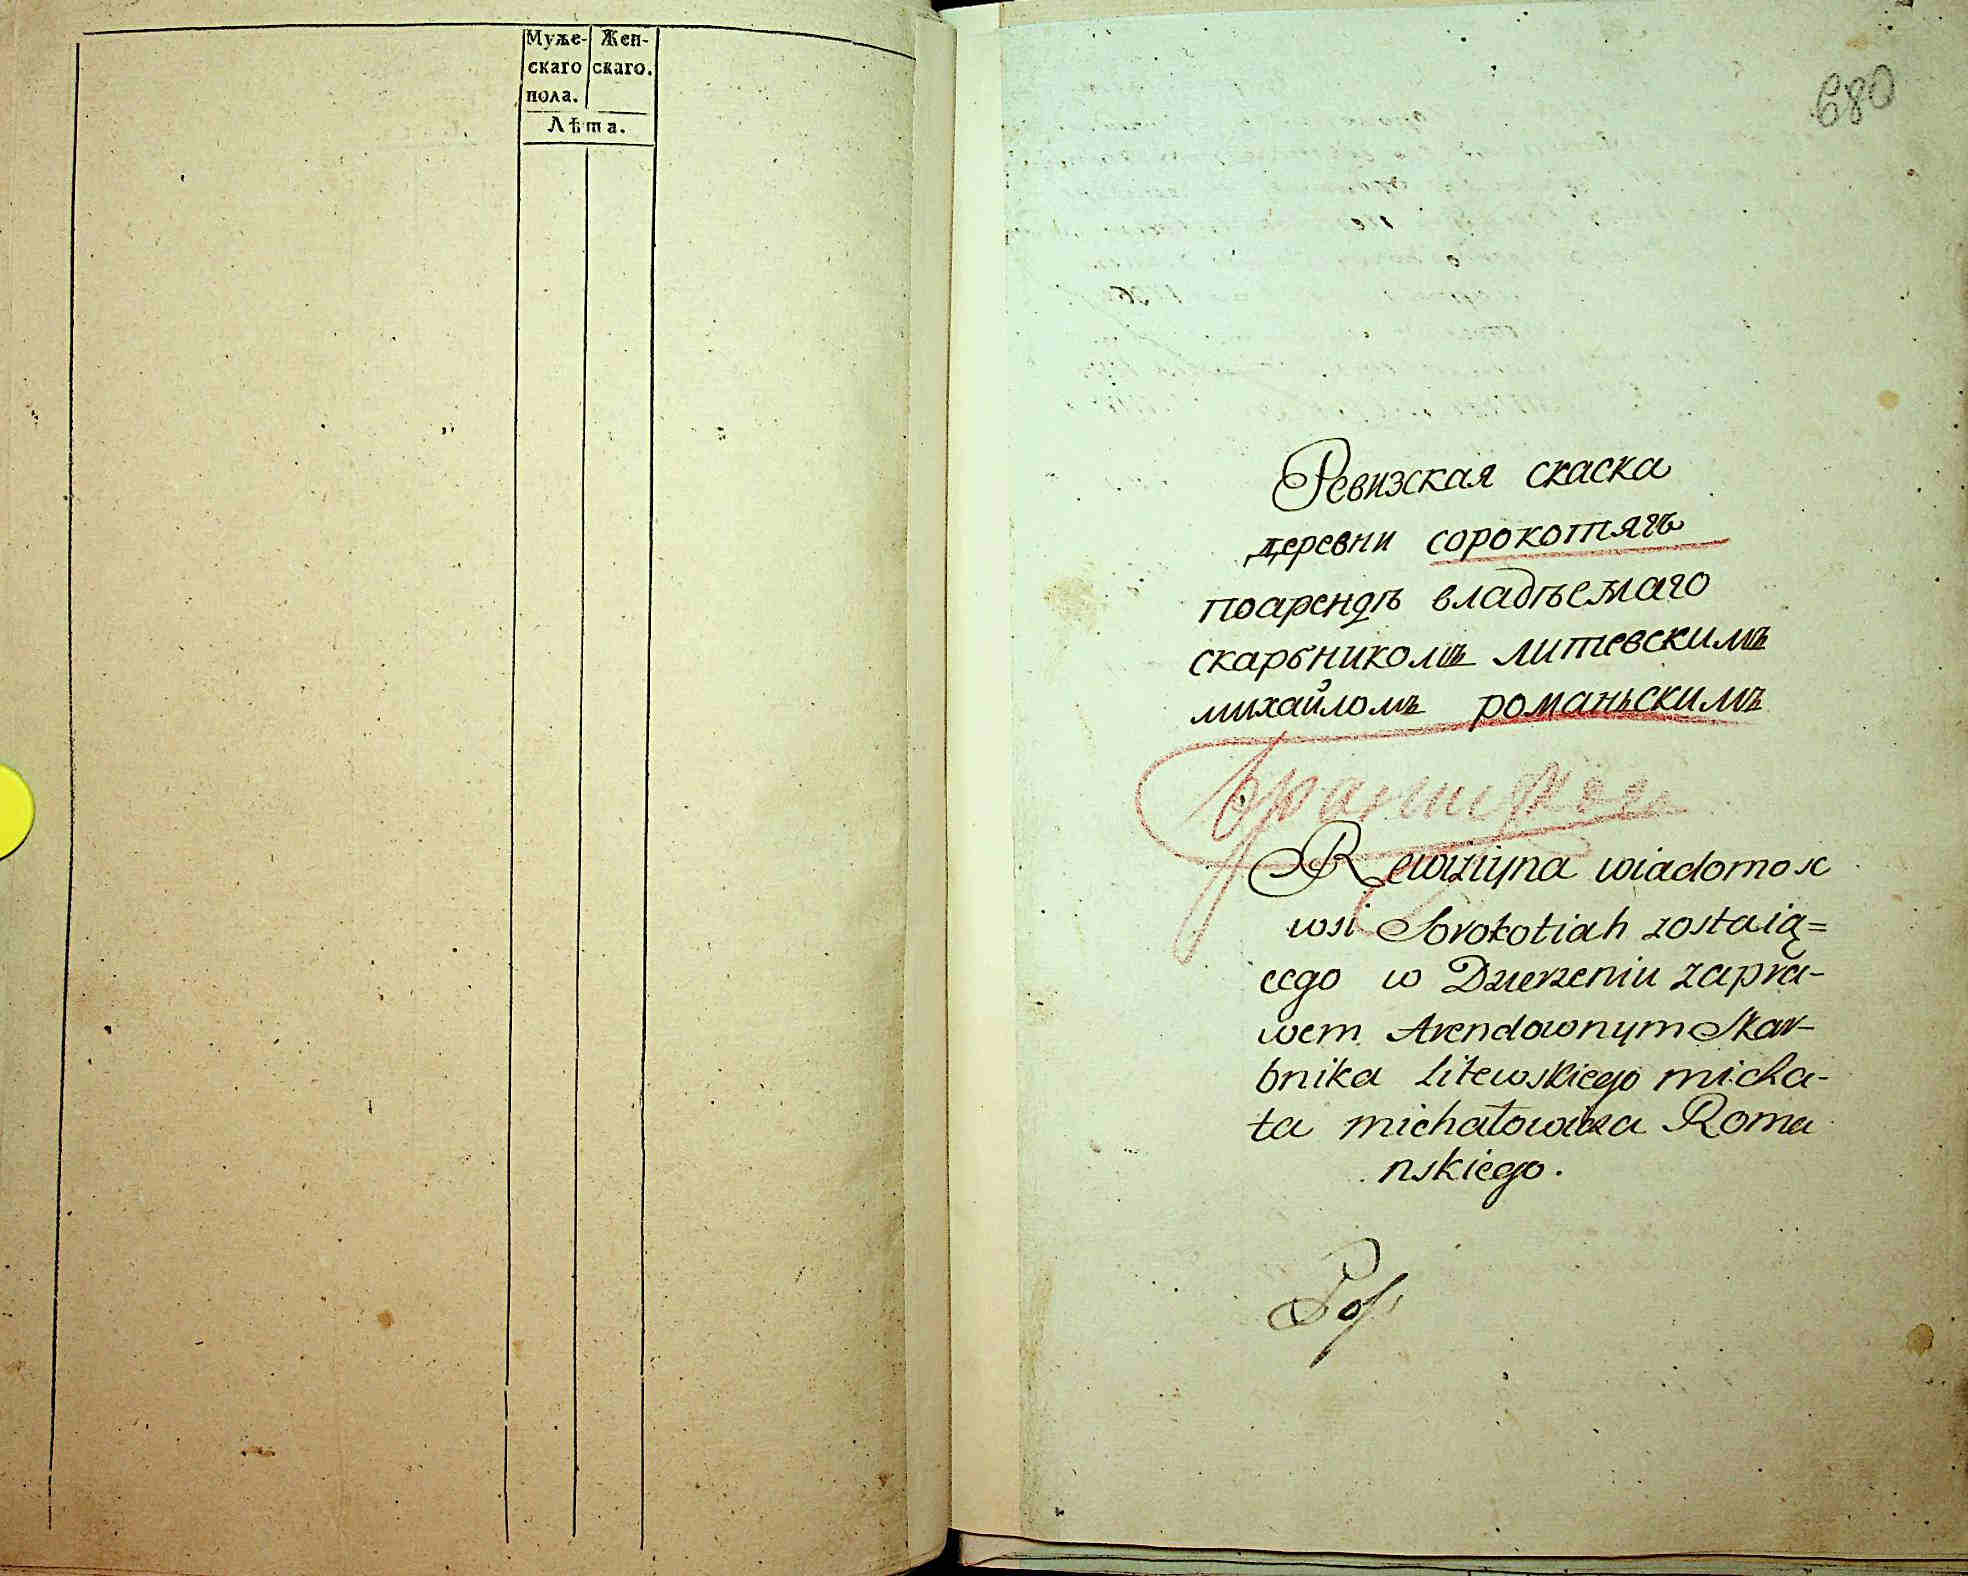 Муже- Жен-
скаго скаго.
пола.
Лѣта.
680
Ревизская скаска
деревни сорокотягъ
поарендѣ владѣемаго
скарбникомъ литевскимъ
михайломъ романьскимъ
Rewiziyna wiadomosc
wsi Sorokotiah zostaią=
cego w Dzierzeniu zapra-
wem Arendownym Skar-
bnika Litewskiego micha-
ła michałowicza Roma
nskiego.